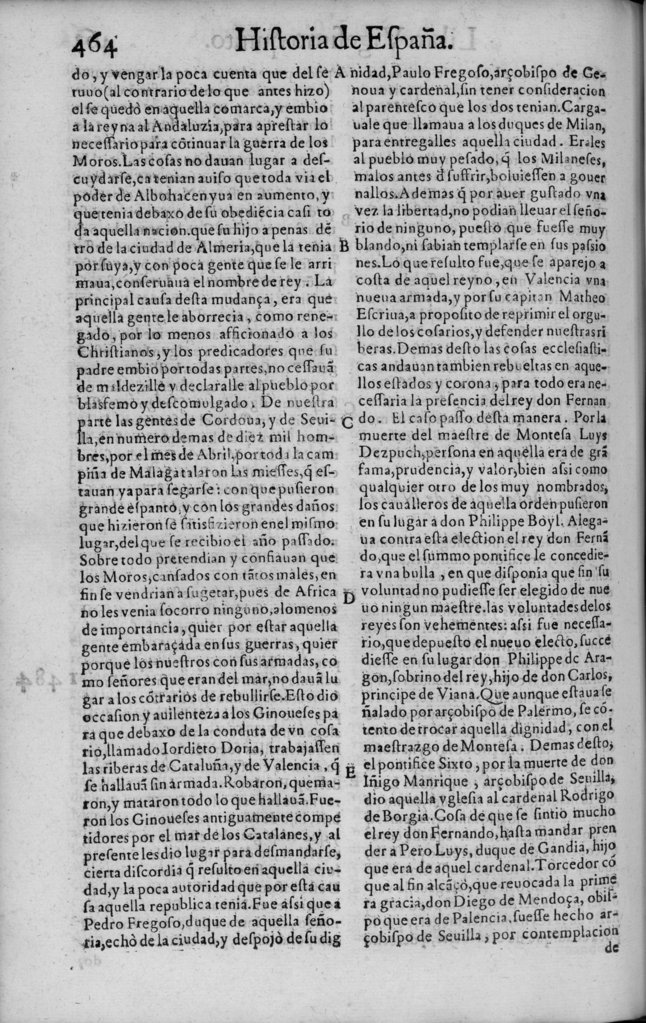 464 Historia de España.
do, y vengar la poca cuenta que del se
tuuo (al contrario de lo que antes hizo)
el se quedò en aquella comarca, y embio
a la reyna al Andaluzia, para aprestar lo
necessario para cõtinuar la guerra de los
Moros. Las cosas no dauan lugar a des-
cuydarse, ca tenian auiso que toda via el
poder de Albohacen yua en aumento, y
que tenia debaxo de su obediẽcia casi to
da aquella nacion. que su hijo a penas dẽ
tro de la ciudad de Almeria, que la tenia
por suya, y con poca gente que se le arri
maua, conseruaua el nombre de rey. La
principal causa desta mudança, era que
aquella gente le aborrecia, como rene-
gado, por lo menos afficionado a los
Christianos, y los predicadores que su
padre embio por todas partes, no cessauã
de maldezille y declaralle al pueblo por
blasfemo y descomulgado. De nuestra
parte las gentes de Cordoua, y de Seui-
lla, en numero de mas de diez mil hom-
bres, por el mes de Abril, por toda la cam
piña de Malaga talaron las miesses, q̃ es-
tauan ya para segarse: con que pusieron
grande espanto, y con los grandes daños
que hizieron se satisfizieron en el mismo
lugar, del que se recibio el año passado.
Sobre todo pretendian y confiauan que
los Moros, cansados con tãtos males, en
fin se vendrian a sugetar, pues de Africa
no les venia socorro ninguno, alomenos
de importancia, quier por estar aquella
gente embaraçada en sus guerras, quier
porque los nuestros con sus armadas, co
mo señores que eran del mar, no dauã lu
gar a los cõtrarios de rebullirse. Esto dio
occasion y auilenteza a los Ginoueses pa
ra que debaxo de la conduta de vn cosa
rio, llamado Iordieto Doria, trabajassen
las riberas de Cataluña, y de Valencia, q̃
se hallauã sin armada. Robaron, quema-
ron, y mataron todo lo que hallauã. Fue-
ron los Ginoueses antiguamente compe
tidores por el mar de los Catalanes, y al
presente les dio lugar para desmandarse,
cierta discordia q̃ resulto en aquella ciu-
dad, y la poca autoridad que por esta cau
sa aquella republica tenia. Fue assi que a
Pedro Fregoso, duque de aquella seño-
ria, echò de la ciudad, y despojò de su dig
A
B
C
D
E
nidad, Paulo Fregoso, arçobispo de Ge-
noua y cardenal, sin tener consideracion
al parentesco que los dos tenian. Carga-
uale que llamaua a los duques de Milan,
para entregalles aquella ciudad. Erales
al pueblo muy pesado, q̃ los Milaneses,
malos antes d̃ suffrir, boluiessen a gouer
nallos. Ademas q̃ por auer gustado vna
vez la libertad, no podian lleuar el seño-
rio de ninguno, puesto que fuesse muy
blando, ni sabian templarse en sus passio
nes. Lo que resulto fue, que se aparejo a
costa de aquel reyno, en Valencia vna
nueua armada, y por su capitan Matheo
Escriua, a proposito de reprimir el orgu-
llo de los cosarios, y defender nuestras ri
beras. Demas desto las cosas ecclesiasti-
cas andauan tambien rebueltas en aque-
llos estados y corona, para todo era ne-
cessaria la presencia del rey don Fernan
do. El caso passo desta manera. Por la
muerte del maestre de Montesa Luys
Dezpuch, persona en aquella era de grã
fama, prudencia, y valor, bien assi como
qualquier otro de los muy nombrados,
los caualleros de aquella orden pusieron
en su lugar a don Philippe Boyl. Alega-
ua contra esta election el rey don Fernã
do, que el summo pontifice le concedie-
ra vna bulla, en que disponia que sin su
voluntad no pudiesse ser elegido de nue
uo ningun maestre. las voluntades de los
reyes son vehementes: assi fue necessa-
rio, que depuesto el nueuo electo, succe
diesse en su lugar don Philippe de Ara-
gon, sobrino del rey, hijo de don Carlos,
principe de Viana. Que aunque estaua se
ñalado por arçobispo de Palermo, se cõ-
tento de trocar aquella dignidad, con el
maestrazgo de Montesa. Demas desto,
el pontifice Sixto, por la muerte de don
Iñigo Manrique, arçobispo de Seuilla,
dio aquella yglesia al cardenal Rodrigo
de Borgia. Cosa de que se sintio mucho
el rey don Fernando, hasta mandar pren
der a Pero Luys, duque de Gandia, hijo
que era de aquel cardenal. Torcedor cõ
que al fin alcãçò, que reuocada la prime
ra gracia, don Diego de Mendoça, obis-
po que era de Palencia, fuesse hecho ar-
çobispo de Seuilla, por contemplacion
de